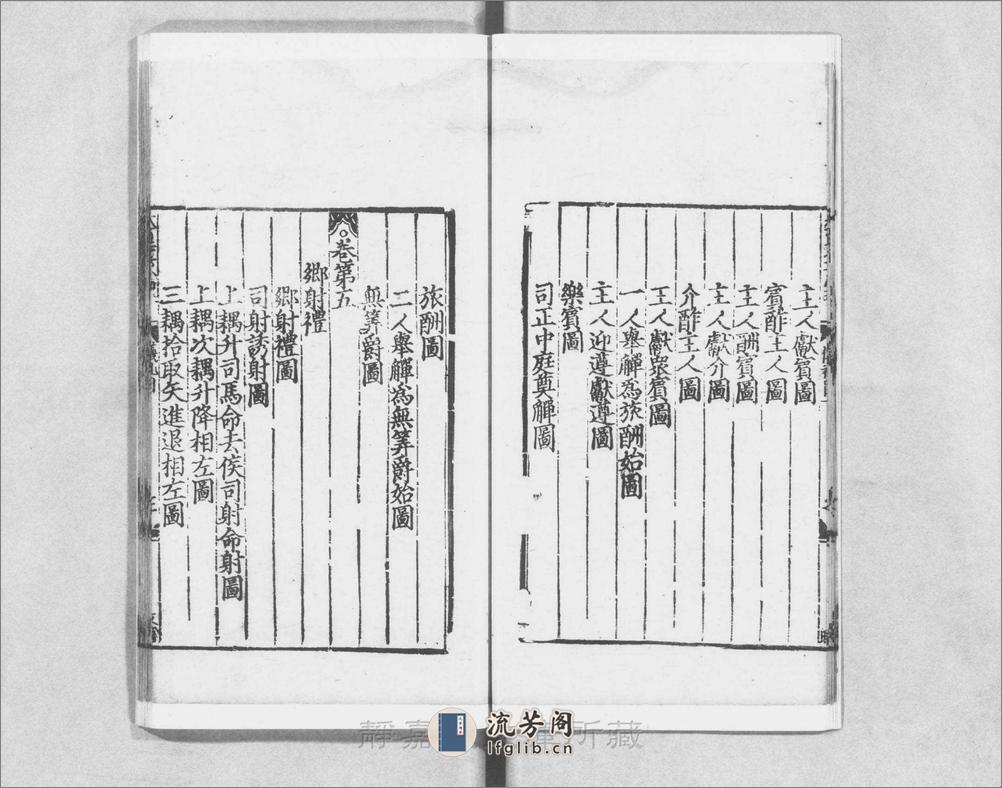 主人獻賓圖
賓酢主人圖
主人酬賓圖
主人獻介圖
介酢主人圖
主人獻衆賓圖
一人舉觶爲旅酬始圖
主人迎遵獻遵圖
樂賓圖
司正中庭奠觶圖
旅酬圖
二人舉觶爲無筭爵始圖
無筭爵圖
卷第五
鄉射禮
鄉射禮圖
司射誘射圖
上耦升司馬命去侯司射命射圖
上耦次耦升降相左圖
三耦拾取矢進退相左圖
靜嘉
所藏
流芳阁
lfglib.cn